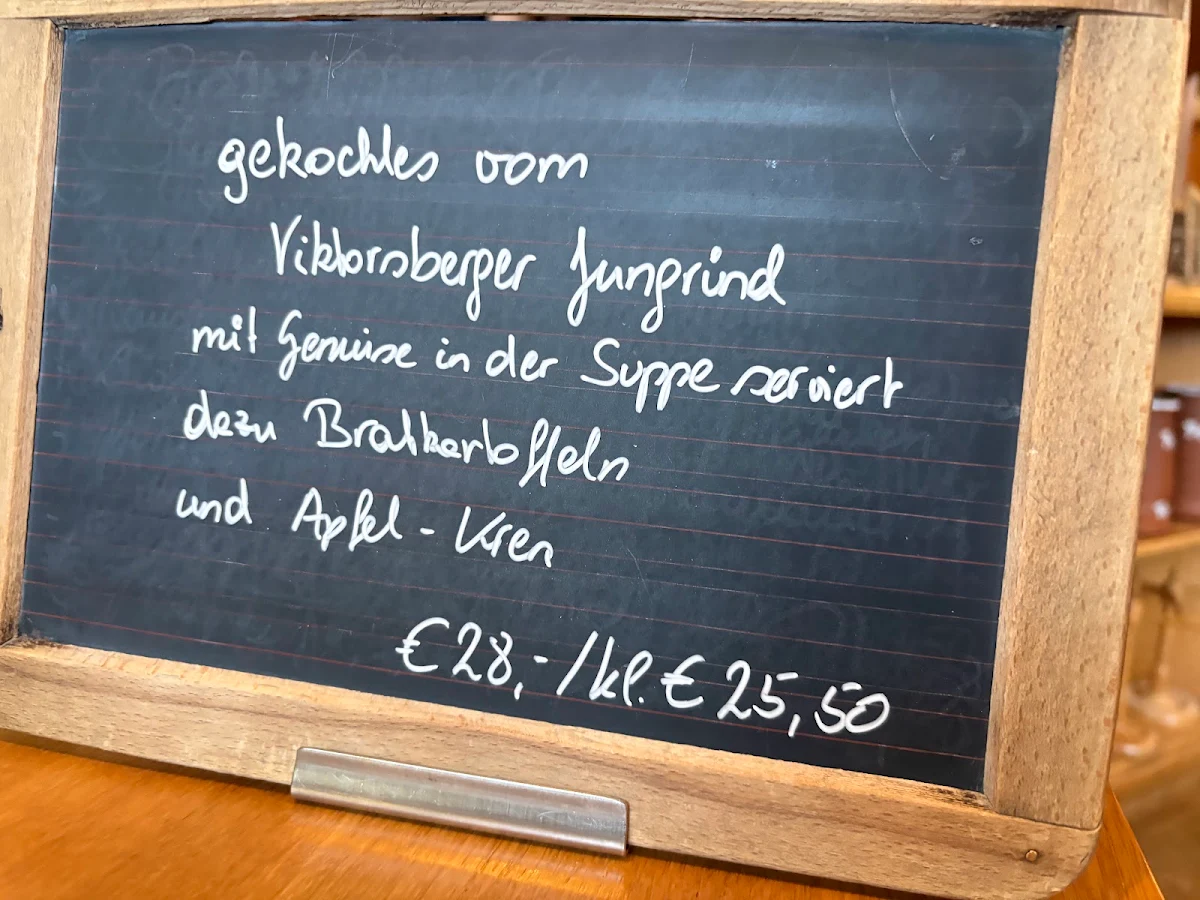 gekochtes vom
Viktorsberger Jungrind
mit Gemüse in der Suppe serviert
dazu Bratkartoffeln
und Apfel-Kren
€ 28,- / kl. € 25,50